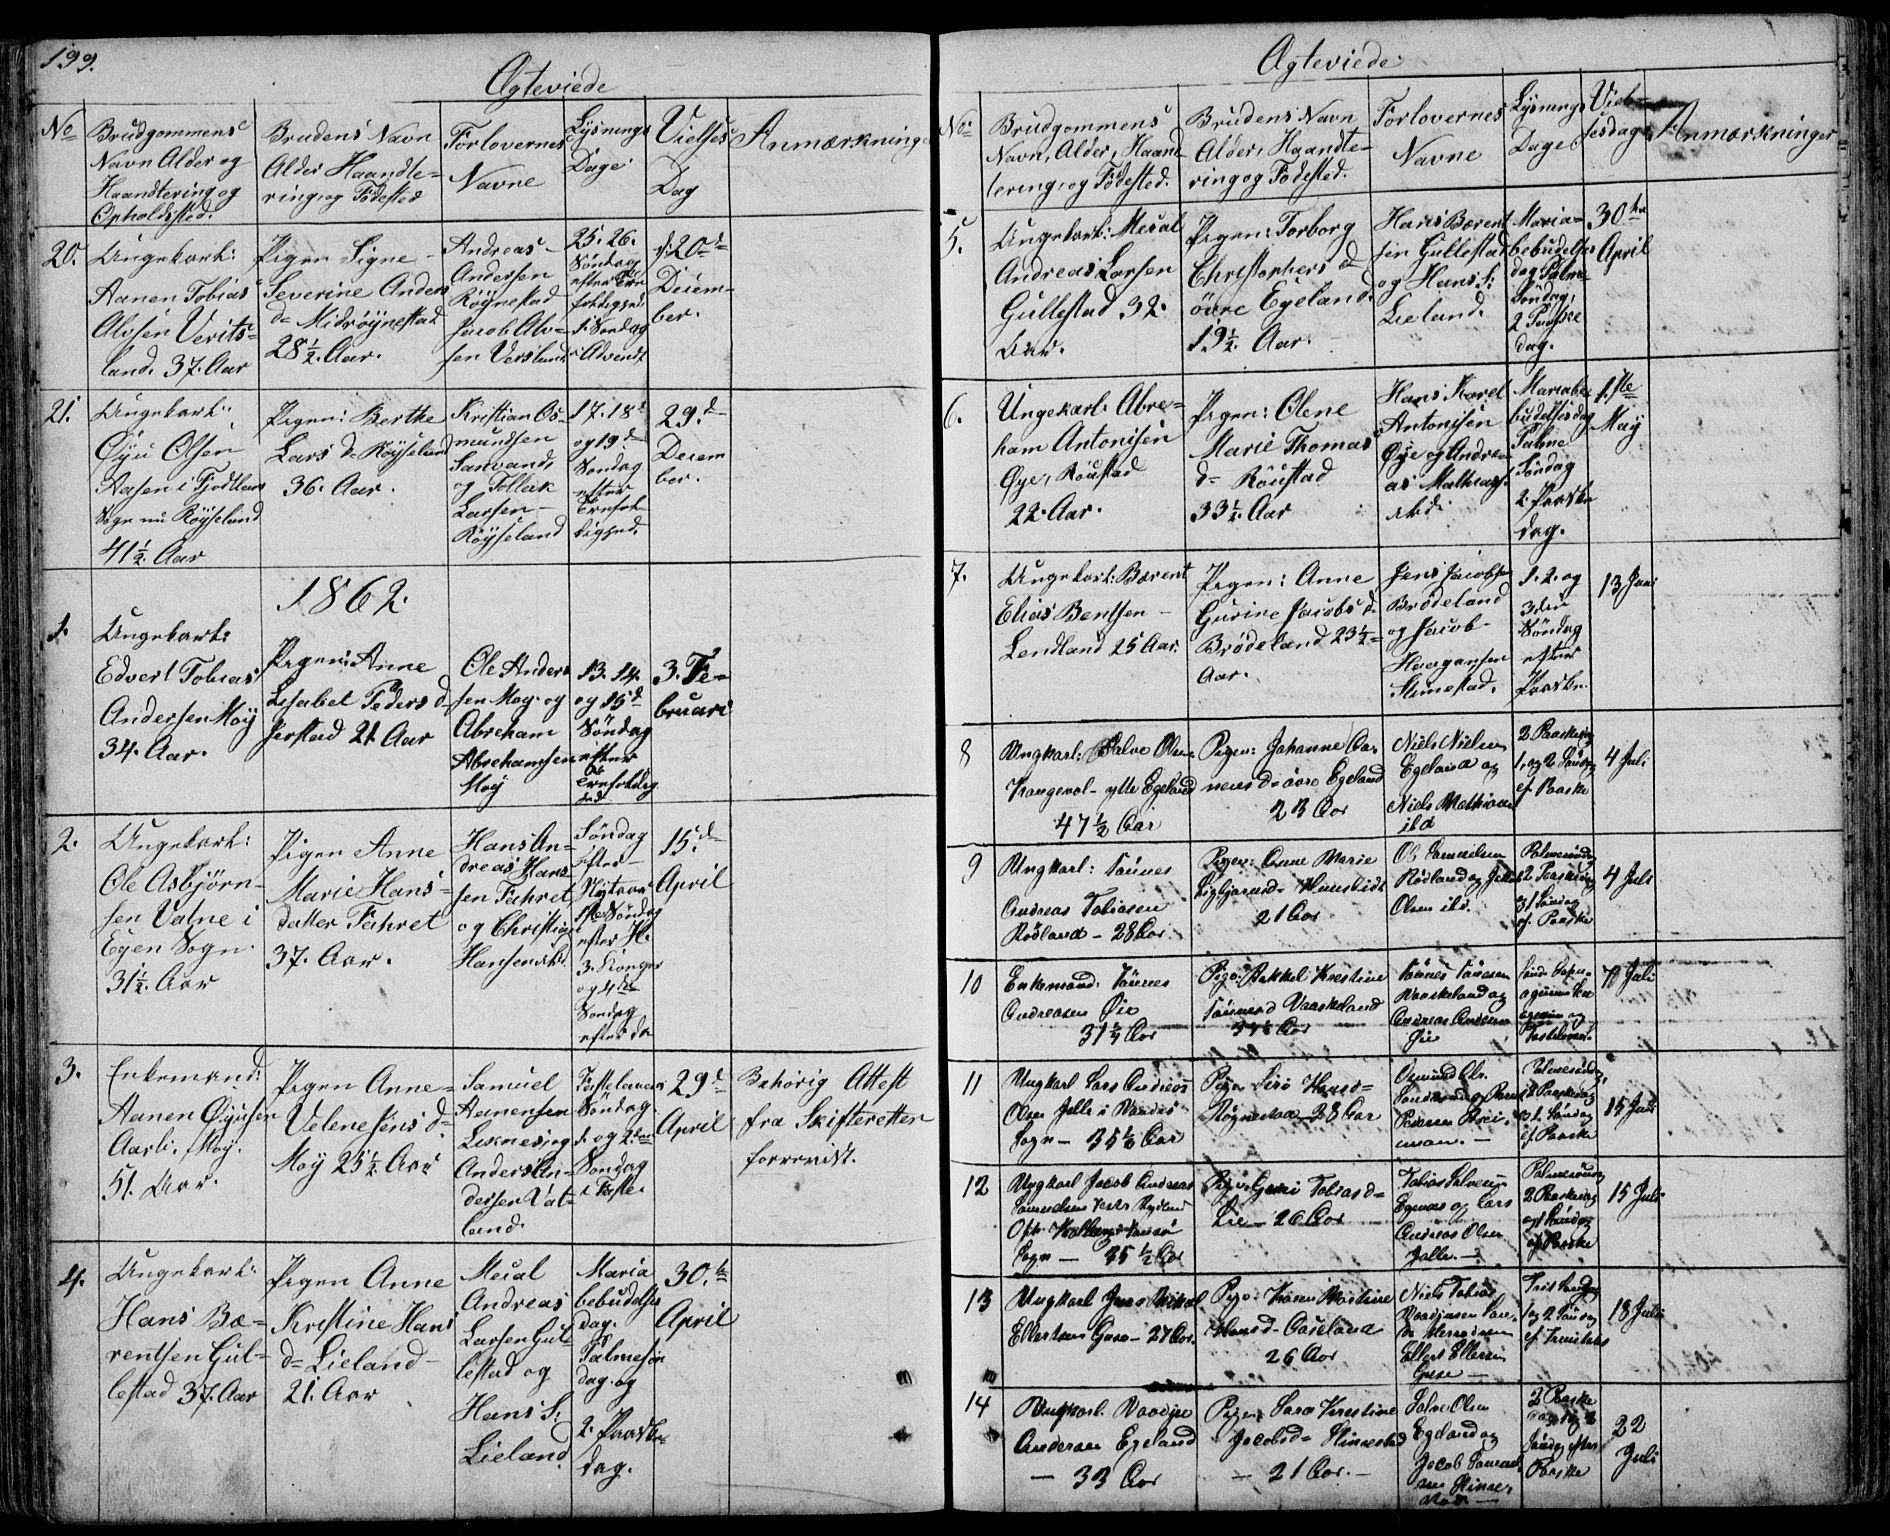 199.
Ægteviede
No
Brudgommens
Navn Alder og
Haandtering og
Opholdssted.
Brudens Navn
Alder Haandte-
ring og Födested
Forlovernes
Navne
Lysnings
Dage
Vielses
Dag
Anmærkninger
20.
Ungekarl:
Aanen Tobias
Alvsen Verits-
land. 37. Aar
Pigen Signe
Severine Anders
d= Midröynestad
28½. Aar.
Andreas
Andersen
Röynestad
Jacob Alv-
sen
25. 26.
Söndag
efter Tre
foldighed
1. Söndag
i Advendt
20de
Decem-
ber.
21.
Ungekarl:
Øyu Olsen
Aasen i Fjotland
Sogn nu Röyseland
41½. Aar
Pigen: Berthe
Lars d= Röyseland
36. Aar.
Kristian Os-
mundsen
Sanvand
og Tollak
Larsen
Röyseland
17. 18d
og 19d
Söndag
efter
Trefol-
dighed.
29.d
Decem
ber.
1862.
1.
Ungekarl:
Edvert Tobias
Andersen Moy
34. Aar.
Pigen: Anne
Lisabet Peders d=
Jerstad 21 Aar
Ole Anders
sen Moy og
Abreham
Abrehamsen
Moy
13. 14.
og 15d
Söndag
efter
Trefoldig
hed
3. Fe-
bruari
2.
Ungekarl:
Ole Asbjörn-
sen Vatne i
Egen Sogn.
31½. Aar
Pigen Anne
Marie Hans-
datter Fahret
37. Aar.
Hans An-
dreas Hans
sen Fahret
og Christian
Hansen
Söndag
efter
Nytaar
1ste Söndag
efter H.
3. Konger
og 4de
Söndag
efter do
15.d
April
3.
Enkemand:
Aanen Øyusen
Moy.
51. Aar.
Pigen Anne
Velene Jens d=
Moy 25½. Aar
Samuel
Aanensen
Lisknes og
Anders An-
dersen Vat-
land.
Fastelavens
Söndag.
1. og 2.
Söndag
i Faste.
29d
April
Behörig Attest
fra Skifteretten
forrevist.
4.
Ungekarl:
Hans Bæ-
rentsen Gul-
lestad 37. Aar
Pigen Anne
Kristine Hans
d= Lieland
21. Aar
Mical
Andreas
Larsen Gul-
lestad og
Hans S:
Lieland
Maria
bebudelses
dag.
Palmesön
dag. og
2. Paaske
dag.
30.te
April
Ægteviede
No:
Brudgommens
Navn, Alder, Haand-
tering, og Födested.
Brudens Navn
Alder, Haandte-
ring og Födested.
Forlovernes
Navne
Lysnings
Dage
Viel-
sesdag
Anmærkninger
5.
Ungekarl: Mical
Andreas Larsen
Gullestad 32.
Aar.
Pigen: Torborg
Christophers d=
övre Egeland.
19½. Aar.
Hans Bærent
sen Gullestad
og Hans S:
Lieland.
Maria-
bebudelses
dag Palme
Söndag,
2 Paaske
dag.
30te
April
6.
Ungekarl: Abre-
ham Antonisen
Øye, Röustad
22. Aar.
Pigen: Olene
Marie Thomas
d= Röustad
33½. Aar
Hans Karel
Antonisen
Øye og Andre-
as Mathias
Mariabe-
budelsesdag
Palme
Söndag
2. Paaske
dag.
1.ste
May
7.
Ungekarl: Bærent
Elias Bentsen
Lendland 25 Aar.
Pigen: Anne
Gurine Jacobs d.
Brödeland 23½
Aar.
Jens Jacobsen
Brödeland
og Jacob
Haagensen
Stimestad.
1. 2. og
3die
Söndag
efter
Paaske.
13 Juni
8
Ungkarl: Salve Olsen
ytte Egeland
47½ Aar
Pigen: Johanne Aa-
nens d= övre Egeland
23 Aar
Niels Nielsen
Egeland og
Niels Mathiasen
ibd
2 Paaskedag
1, og 2 Söndag
ef. Paaske
4 Juli
9
Ungkarl: Tönnes
Andreas Tobiasen
Rödland - 28 Aar.
Pigen: Anne Marie
21 Aar
Ole Samuelsen
Rödland og
Olsen ibd.
Palmesöndag
2 Paaskedag
Söndag
ef. Paaske
4 Juli
10
Enkemand: Tönnes
Andreasen Øie
31¼ Aar
Pige: Rakkel Krestine
Tönnes d Vaaskeland
Aar
Tönnes Tönesen
Vaaskeland og
Andreas Andersen
Øie
7 Juli
11
Ungkarl Lars Andreas
Olsen Jalle i
Sogn - 35½ Aar
Pige: Siri Hans d=
Röynestad 28 Aar
Osmund Ols.
Pedersen
Palmesöndag,
2 Paaskedag
og 1. Söndag
ef. Paaske
15 Juli
12
Ungkarl Jacob Andreas
Samuelsen
Sogn - 35½ Aar
Pige: Guri Tobias d=
Lie - 26 Aar
Tobias Salvesen
og Lars
Andreas Olsen
Jalle.
Palmesöndag
2 Paaskedag
og 1 Söndag
ef Paaske
15 Juli
13
Ungkarl Jens Mikal
Ellertsen Gyse - 27 Aar.
Pige: Karen Martine
Hans d= Aaseland
26 Aar
Niels Tobias
Ellert Ellertsen
Gyse
og 2 Söndag
ef. Trinitatis
18 Juli
14
Ungkarl. Daadne
Andersen Egeland
- 33 Aar
Pigen: Sara Krestine
Jacobs d= Stimestad
- 21 Aar. -
Salve Olsen
Egeland og
Jacob
2 Paaske
dag, 1 og 2
Söndag efter
Paaske
22
Juli